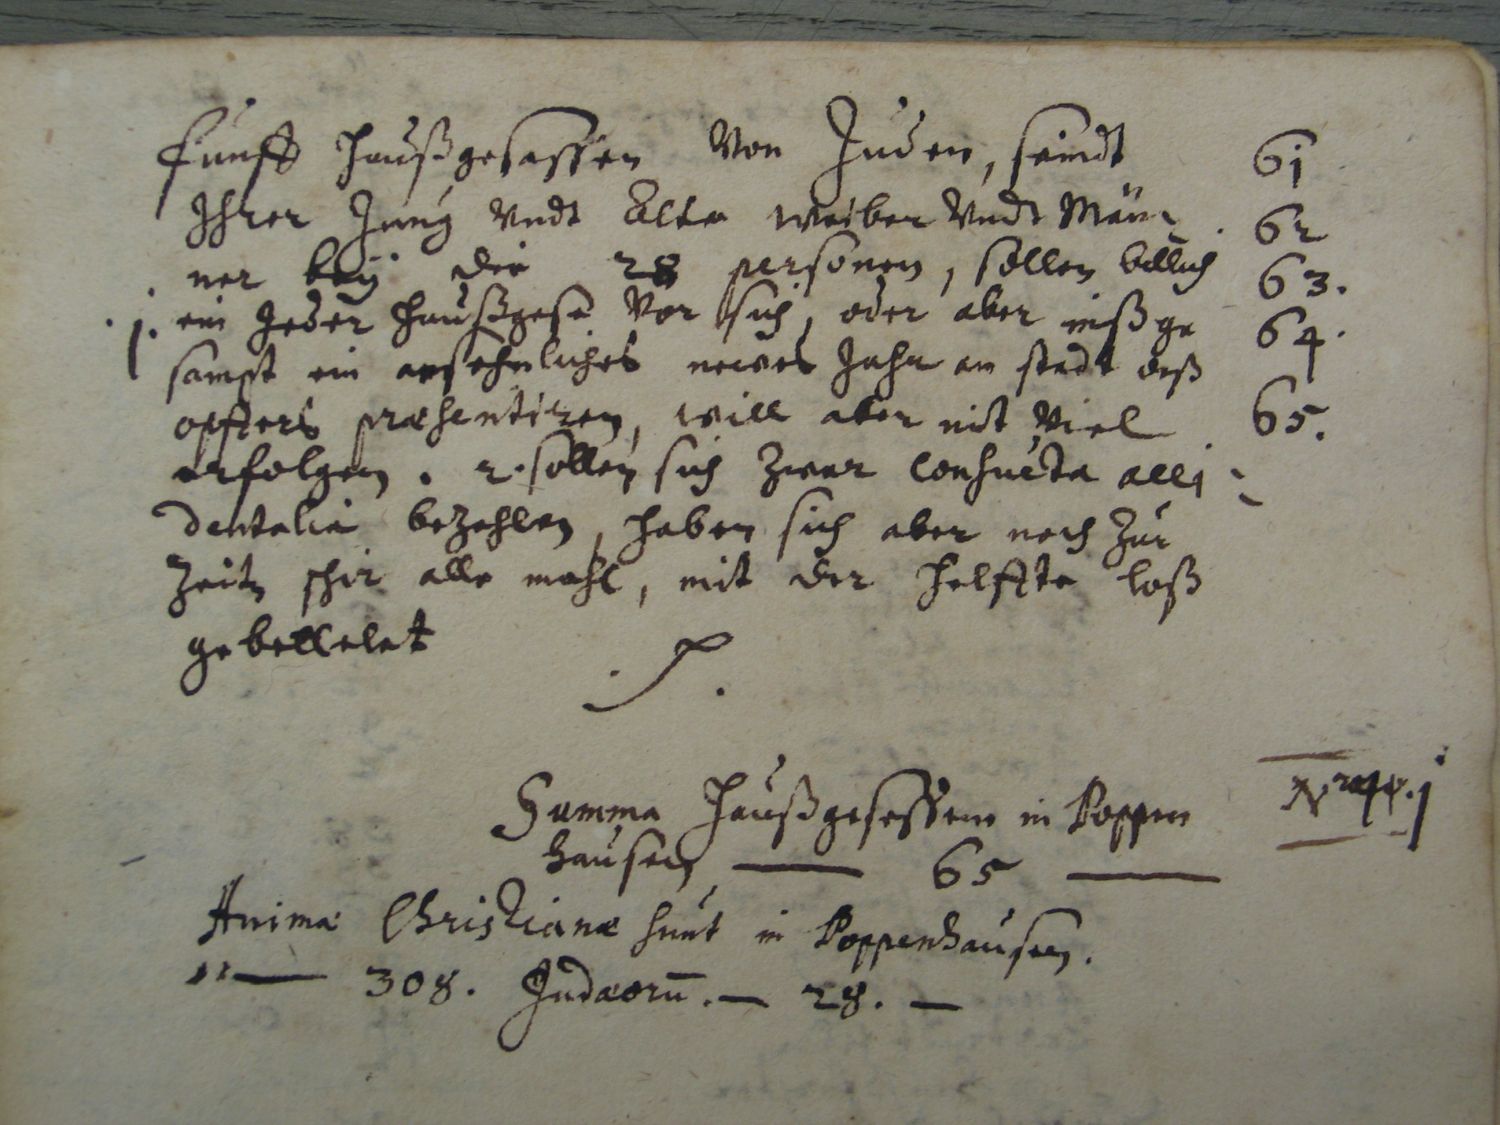 Fünff haußgesassen Von Juden, seindt 61
Ihrer Jung Vndt Alte weiber Vndt Män- 62
ner bey die 28 personen, sollen billich 63.
1. ein Jeder haußgese Vor sich, oder aber inßge 64.
sampt ein ansehnliches newes Jahr an stadt deß
opffers præsentiren, will aber nit Viel 65.
erfolgen. 2. sollen sich zwar consueta acci-
dentalia bezahlen, haben sich aber noch zur
Zeitt schir alle mahl, mit der helffte loß
gebettelet
Summa haußgesessene in Poppen
hausen — 65 —
Animæ Christianæ sunt in Poppenhausen.
— 308. Judæorū. — 28. —